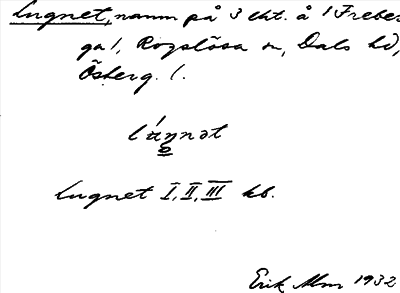 Lugnet, namn på 3 lht. å 1 Freber-
ga 1, Rogslösa sn, Dals hd,
Österg. l.
lúŋnət
Lugnet I, II, III kb.
Erik Mm 1932